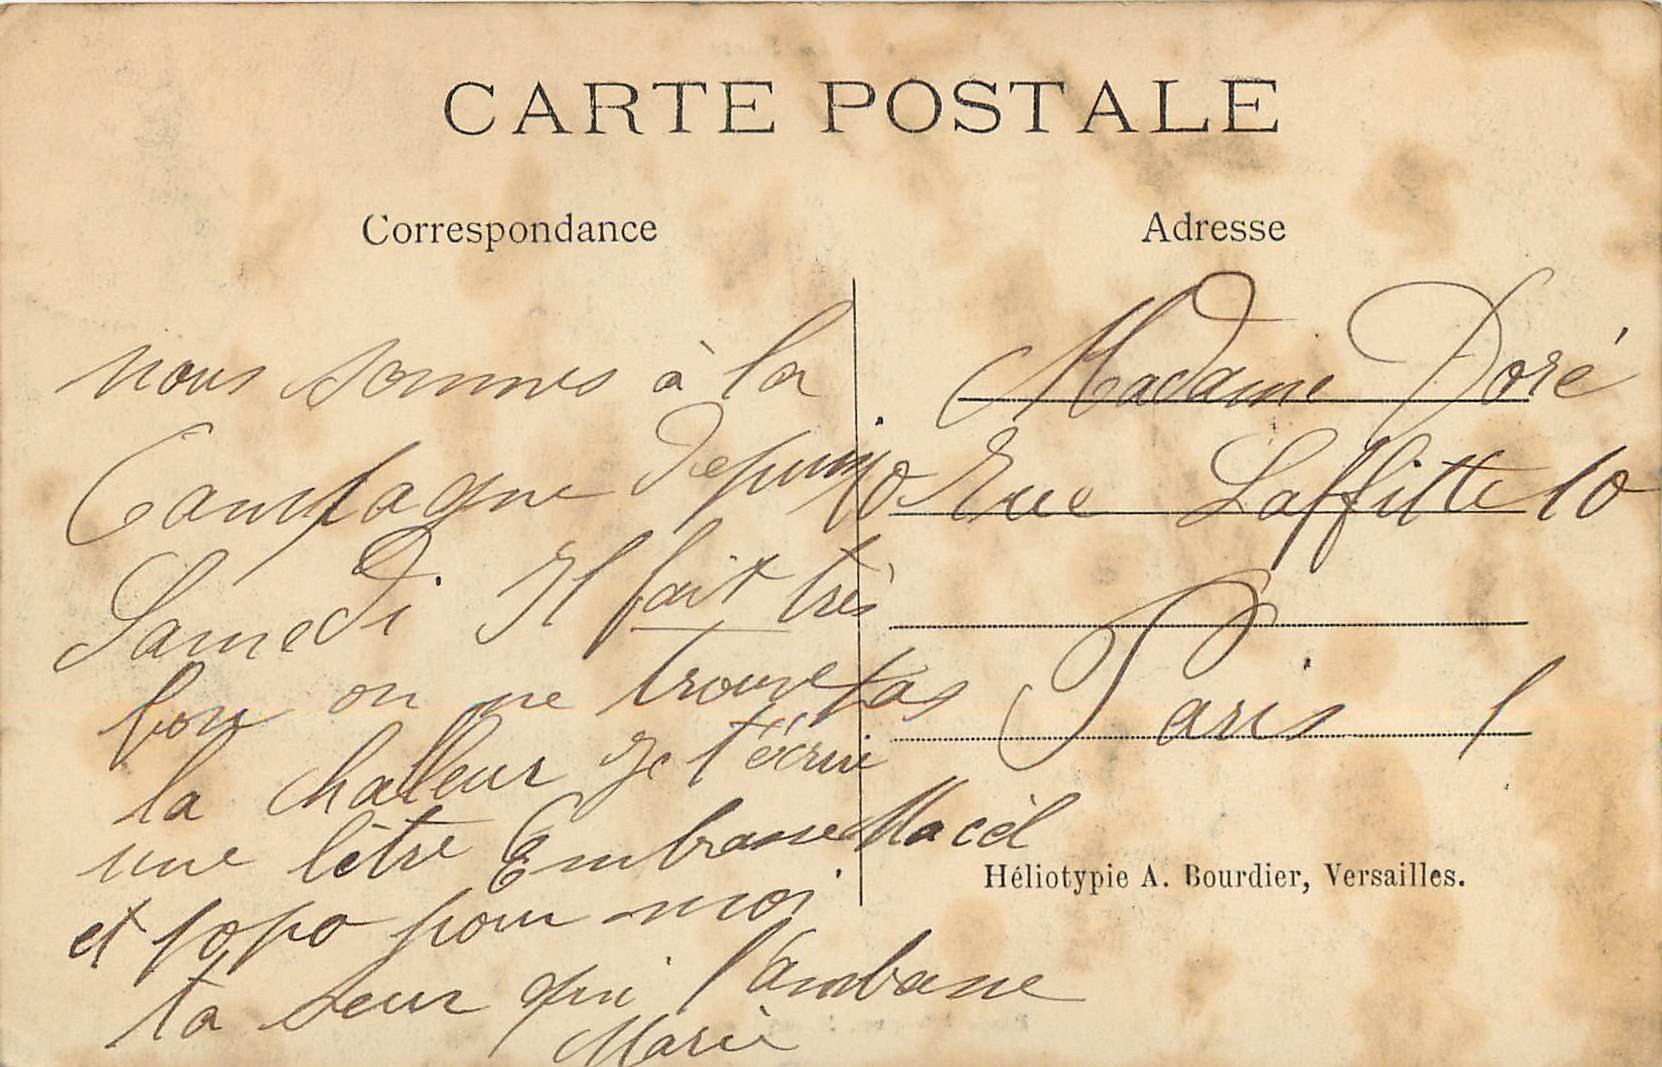 CARTE POSTALE
Correspondance
nous sommes à la
Campagne depuis
Samedi Il fait très
bon on ne trouve pas
la challeur Je t'écrie
une lètre Embrasse Macèl
et popo pour moi
ta seur qui t'ambrasse
Marie
Adresse
Madame Doré
10 Rue Laffitte 10
Paris
Héliotypie A. Bourdier, Versailles.